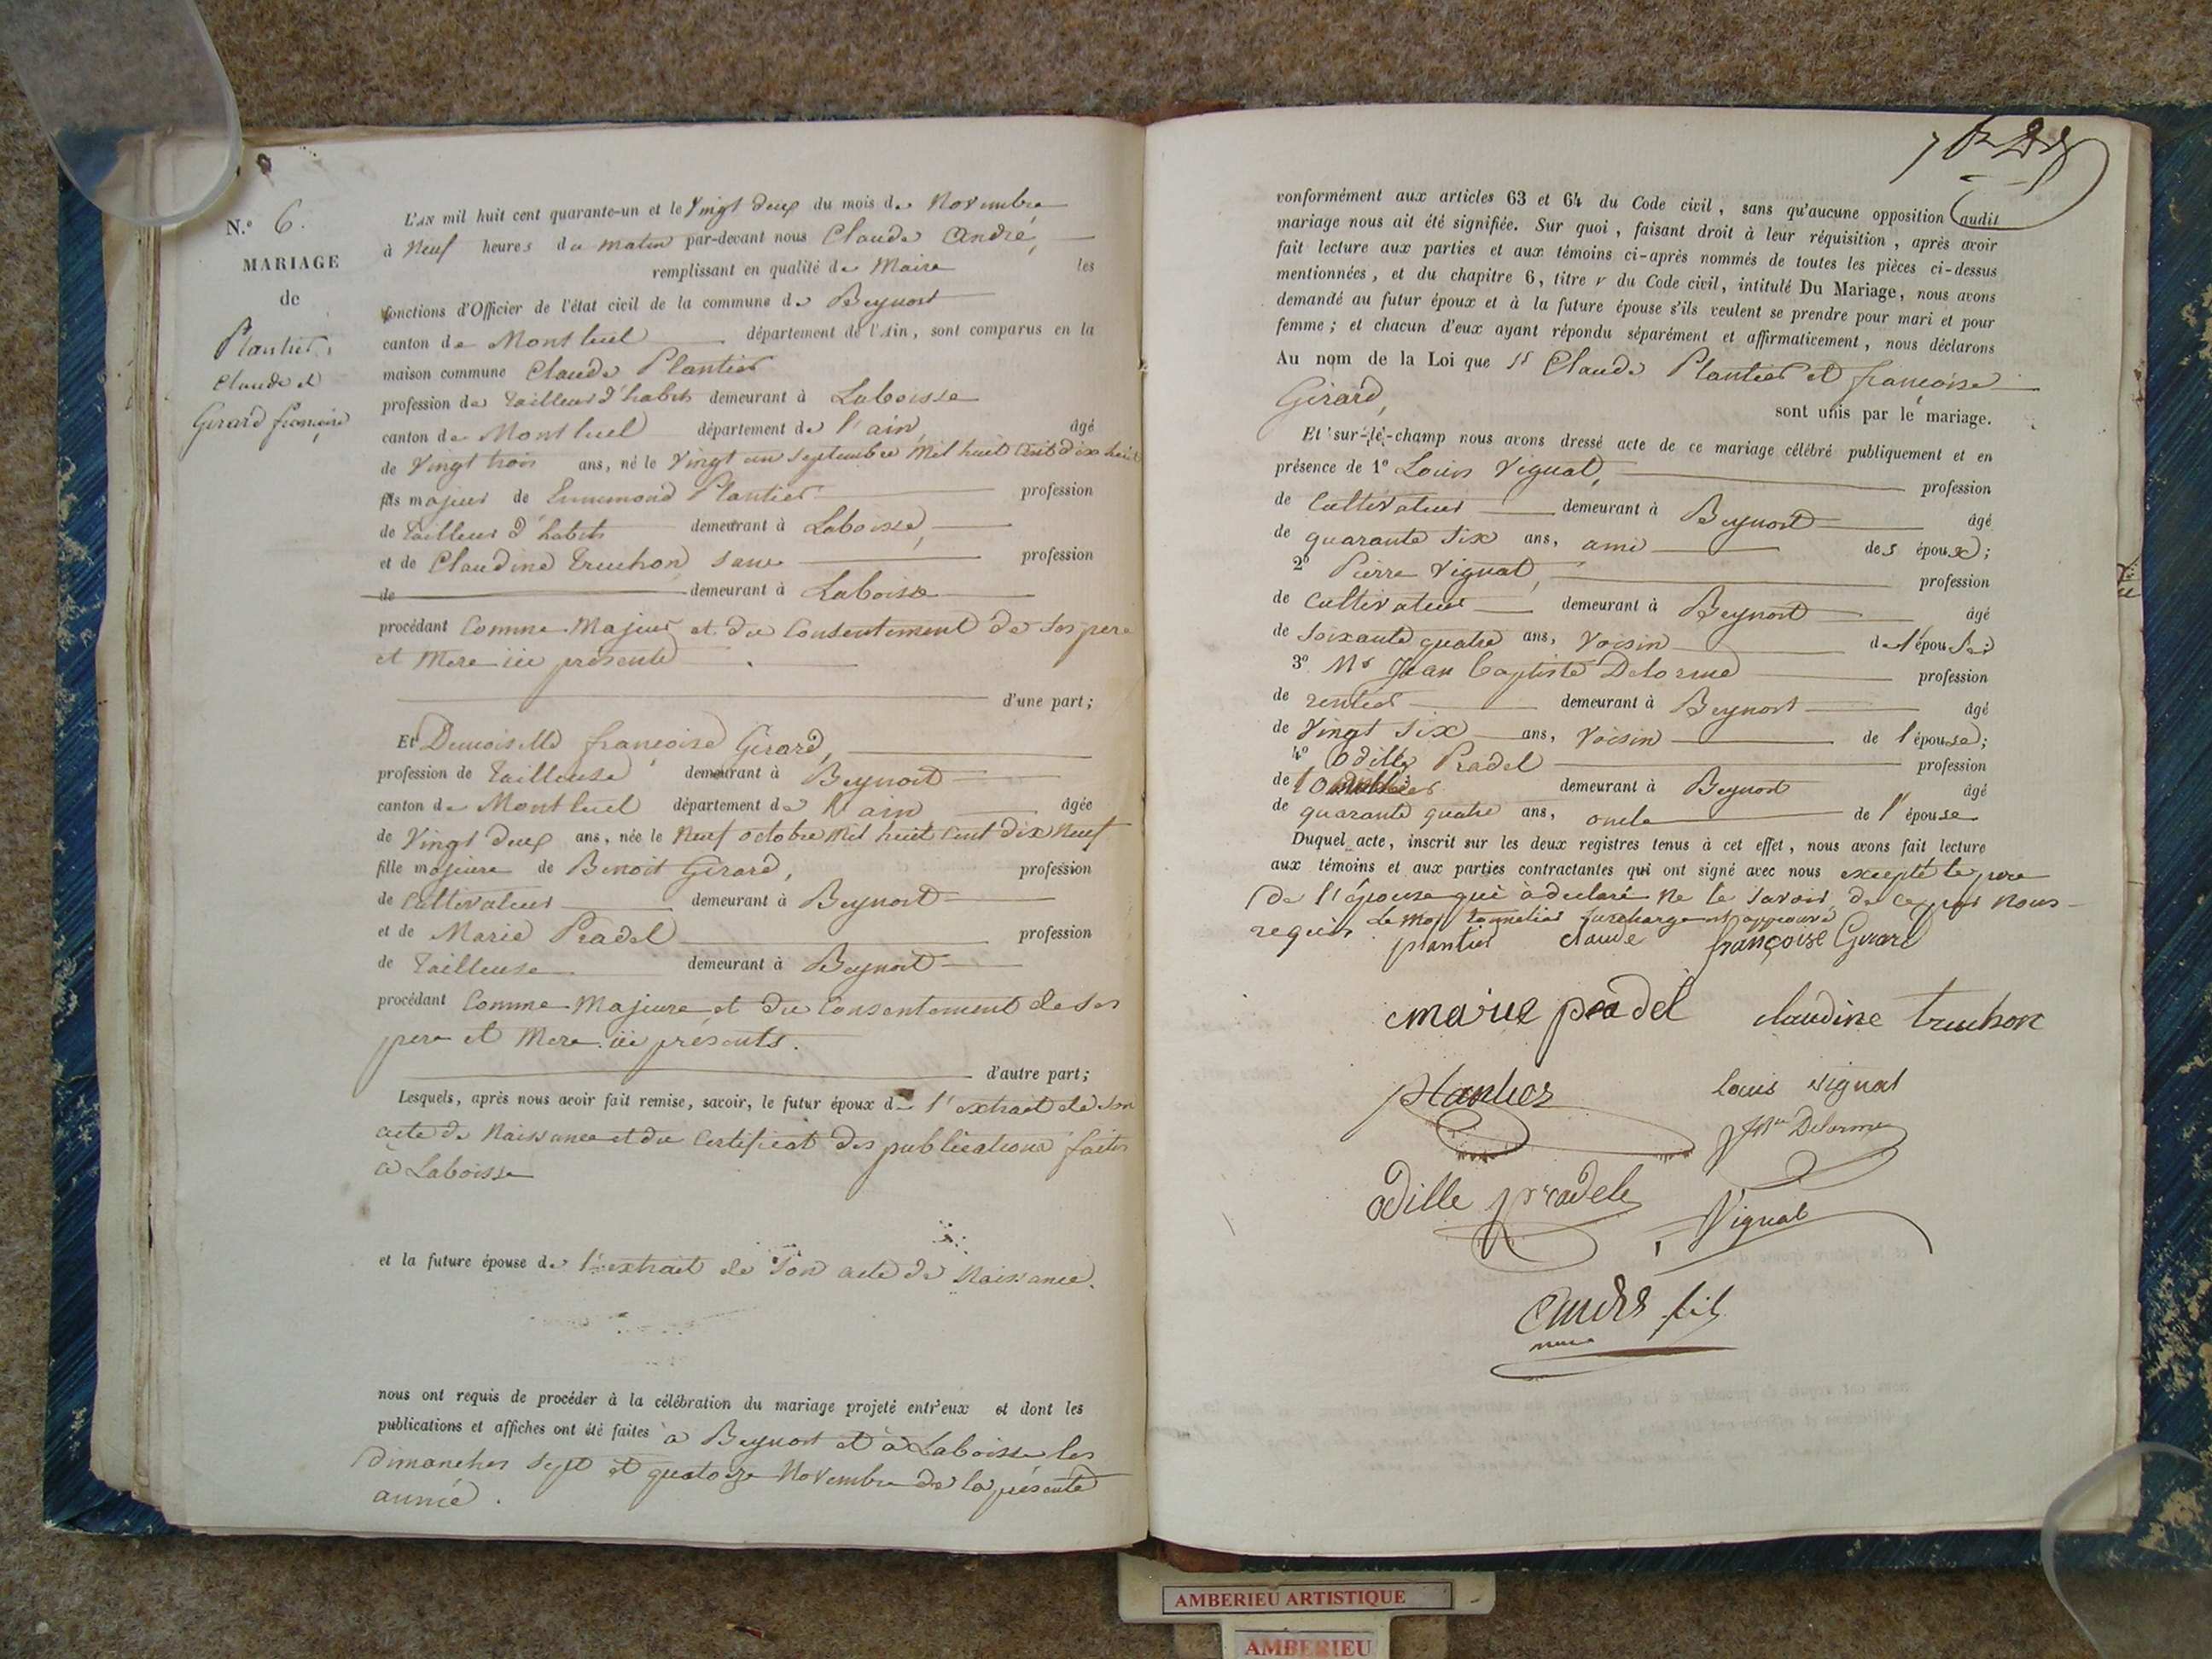 N.º 6.
MARIAGE
de
Plantier,
Claude et
Girard françoise
L'AN mil huit cent quarante-un et le Vingt deux du mois de Novembre
à Neuf heures du matin par-devant nous Claude André,
remplissant en qualité de Maire les
fonctions d'Officier de l'état civil de la commune de Beynost
canton de Montluel département de l'Ain, sont comparus en la
maison commune Claude Plantier
profession de tailleur d'habits demeurant à Laboisse
canton de Montluel département de l'ain, âgé
de Vingt trois ans, né le Vingt un Septembre Mil huit Cent dix huit
fils majeur de Ennemond Plantier profession
de tailleur d'habits demeurant à Laboisse,
et de Claudine Truchon sans profession
de demeurant à Laboisse
procédant Comme Majeur et du Consentement de ses pere
et Mere ici présents
d'une part;
Et Demoiselle françoise Girard,
profession de tailleuse demeurant à Beynost
canton de Montluel département de l'ain âgée
de Vingt deux ans, née le Neuf octobre Mil huit Cent dix Neuf
fille majeure de Benoit Girard, profession
de Cultivateur demeurant à Beynost
et de Marie Pradel profession
de tailleuse demeurant à Beynost
procédant Comme Majeure et du Consentement de ses
pere et Mere ici présents.
d'autre part;
Lesquels, après nous avoir fait remise, savoir, le futur époux de l'extrait de son
acte de Naissance et du Certificat des publications faites
à Laboisse
et la future épouse de l'extrait de son acte de Naissance.
nous ont requis de procéder à la célébration du mariage projeté entr'eux et dont les
publications et affiches ont été faites à Beynost et à Laboisse les
dimanches sept et quatorze Novembre de la présente
année.
conformément aux articles 63 et 64 du Code civil, sans qu'aucune opposition audit
mariage nous ait été signifiée. Sur quoi, faisant droit à leur réquisition, après avoir
fait lecture aux parties et aux témoins ci-après nommés de toutes les pièces ci-dessus
mentionnées, et du chapitre 6, titre v du Code civil, intitulé Du Mariage, nous avons
demandé au futur époux et à la future épouse s'ils veulent se prendre pour mari et pour
femme; et chacun d'eux ayant répondu séparément et affirmativement, nous déclarons
Au nom de la Loi que Sr Claude Plantier et françoise
Girard, sont unis par le mariage.
Et sur-le-champ nous avons dressé acte de ce mariage célébré publiquement et en
présence de 1º Louis Vignat, profession
de Cultivateur demeurant à Beynost âgé
de quarante Six ans, ami des époux;
2º Pierre Vignat, profession
de Cultivateur demeurant à Beynost âgé
de Soixante quatre ans, Voisin de l'épouse;
3º Mr Jean baptiste Delorme profession
de rentier demeurant à Beynost âgé
de Vingt Six ans, Voisin de l'épouse;
4º Odille Pradel profession
de demeurant à Beynost âgé
de quarante quatre ans, oncle de l'épouse
Duquel acte, inscrit sur les deux registres tenus à cet effet, nous avons fait lecture
aux témoins et aux parties contractantes qui ont signé avec nous excepté le pere
de l'épouse qui à déclaré ne le savoir de ce par Nous
requis le mot tonnelier surchargé approuvé
plantier claude françoise Girard
marie pradel claudine truchon
plantier louis vignat
Jn Bte Delorme
odille pradel Vignat
André fils
maire
AMBERIEU ARTISTIQUE
AMBERIEU